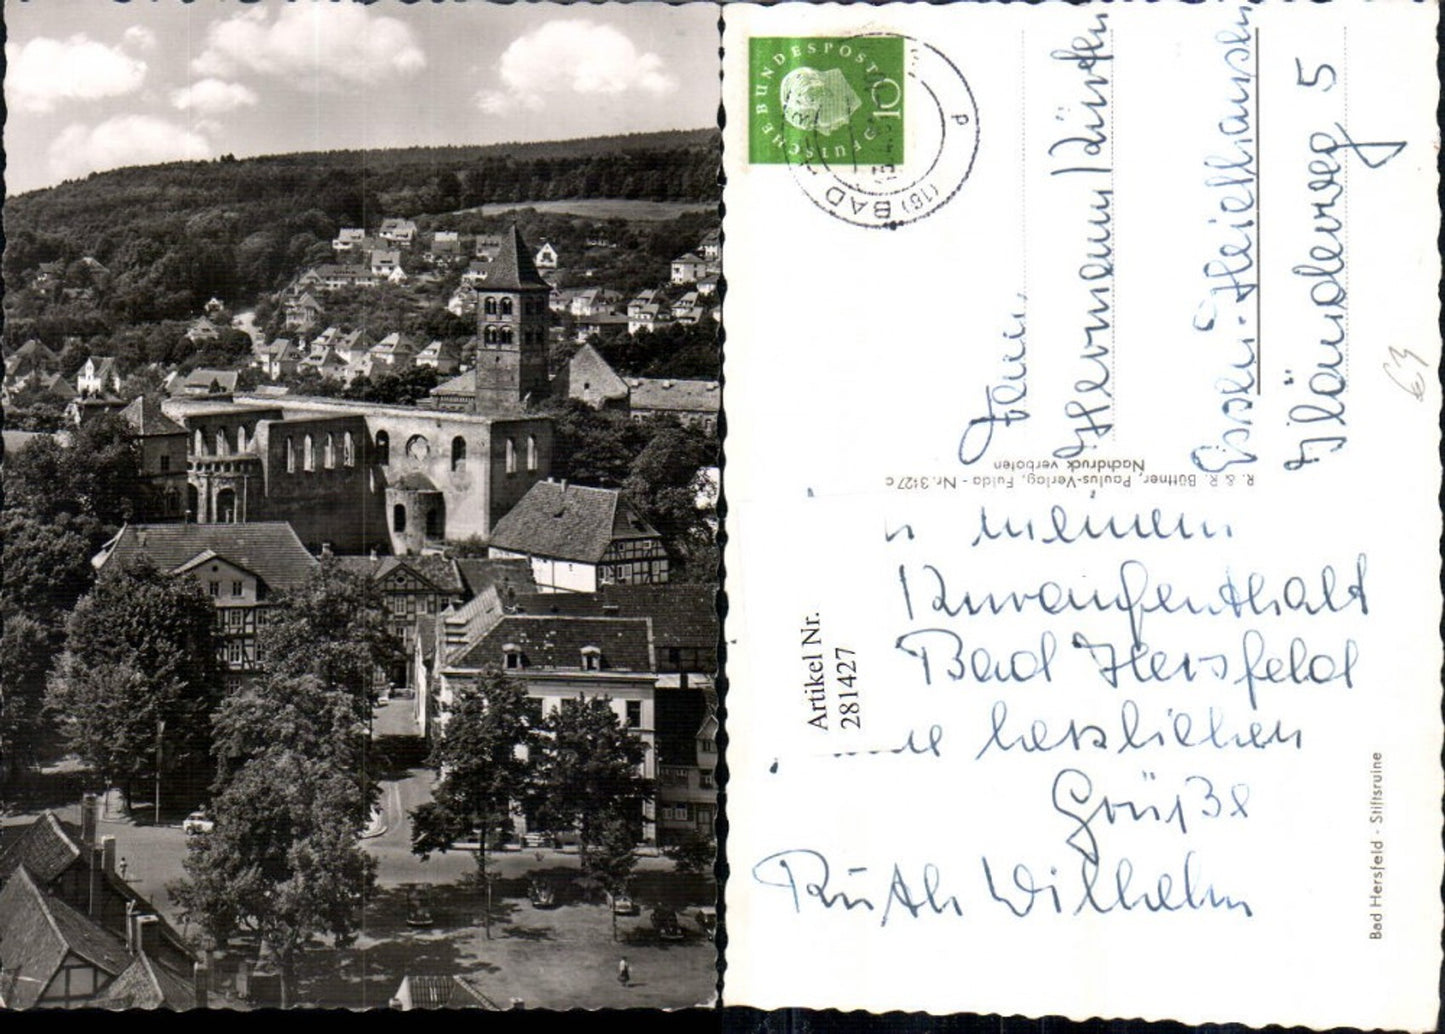 DEUTSCHE BUNDESPOST
10
(16) BAD
Herrn
Hermann Kürten
Essen-Heidhausen
Häuderweg 5
R. & R. Büttner, Paulus-Verlag, Fulda - Nr. 3127c
Nachdruck verboten
meinem
Kuraufenthalt
Bad Hersfeld
herzlichen
Grüße
Ruth Wilhelm
Artikel Nr.
281427
Bad Hersfeld - Stiftsruine
63